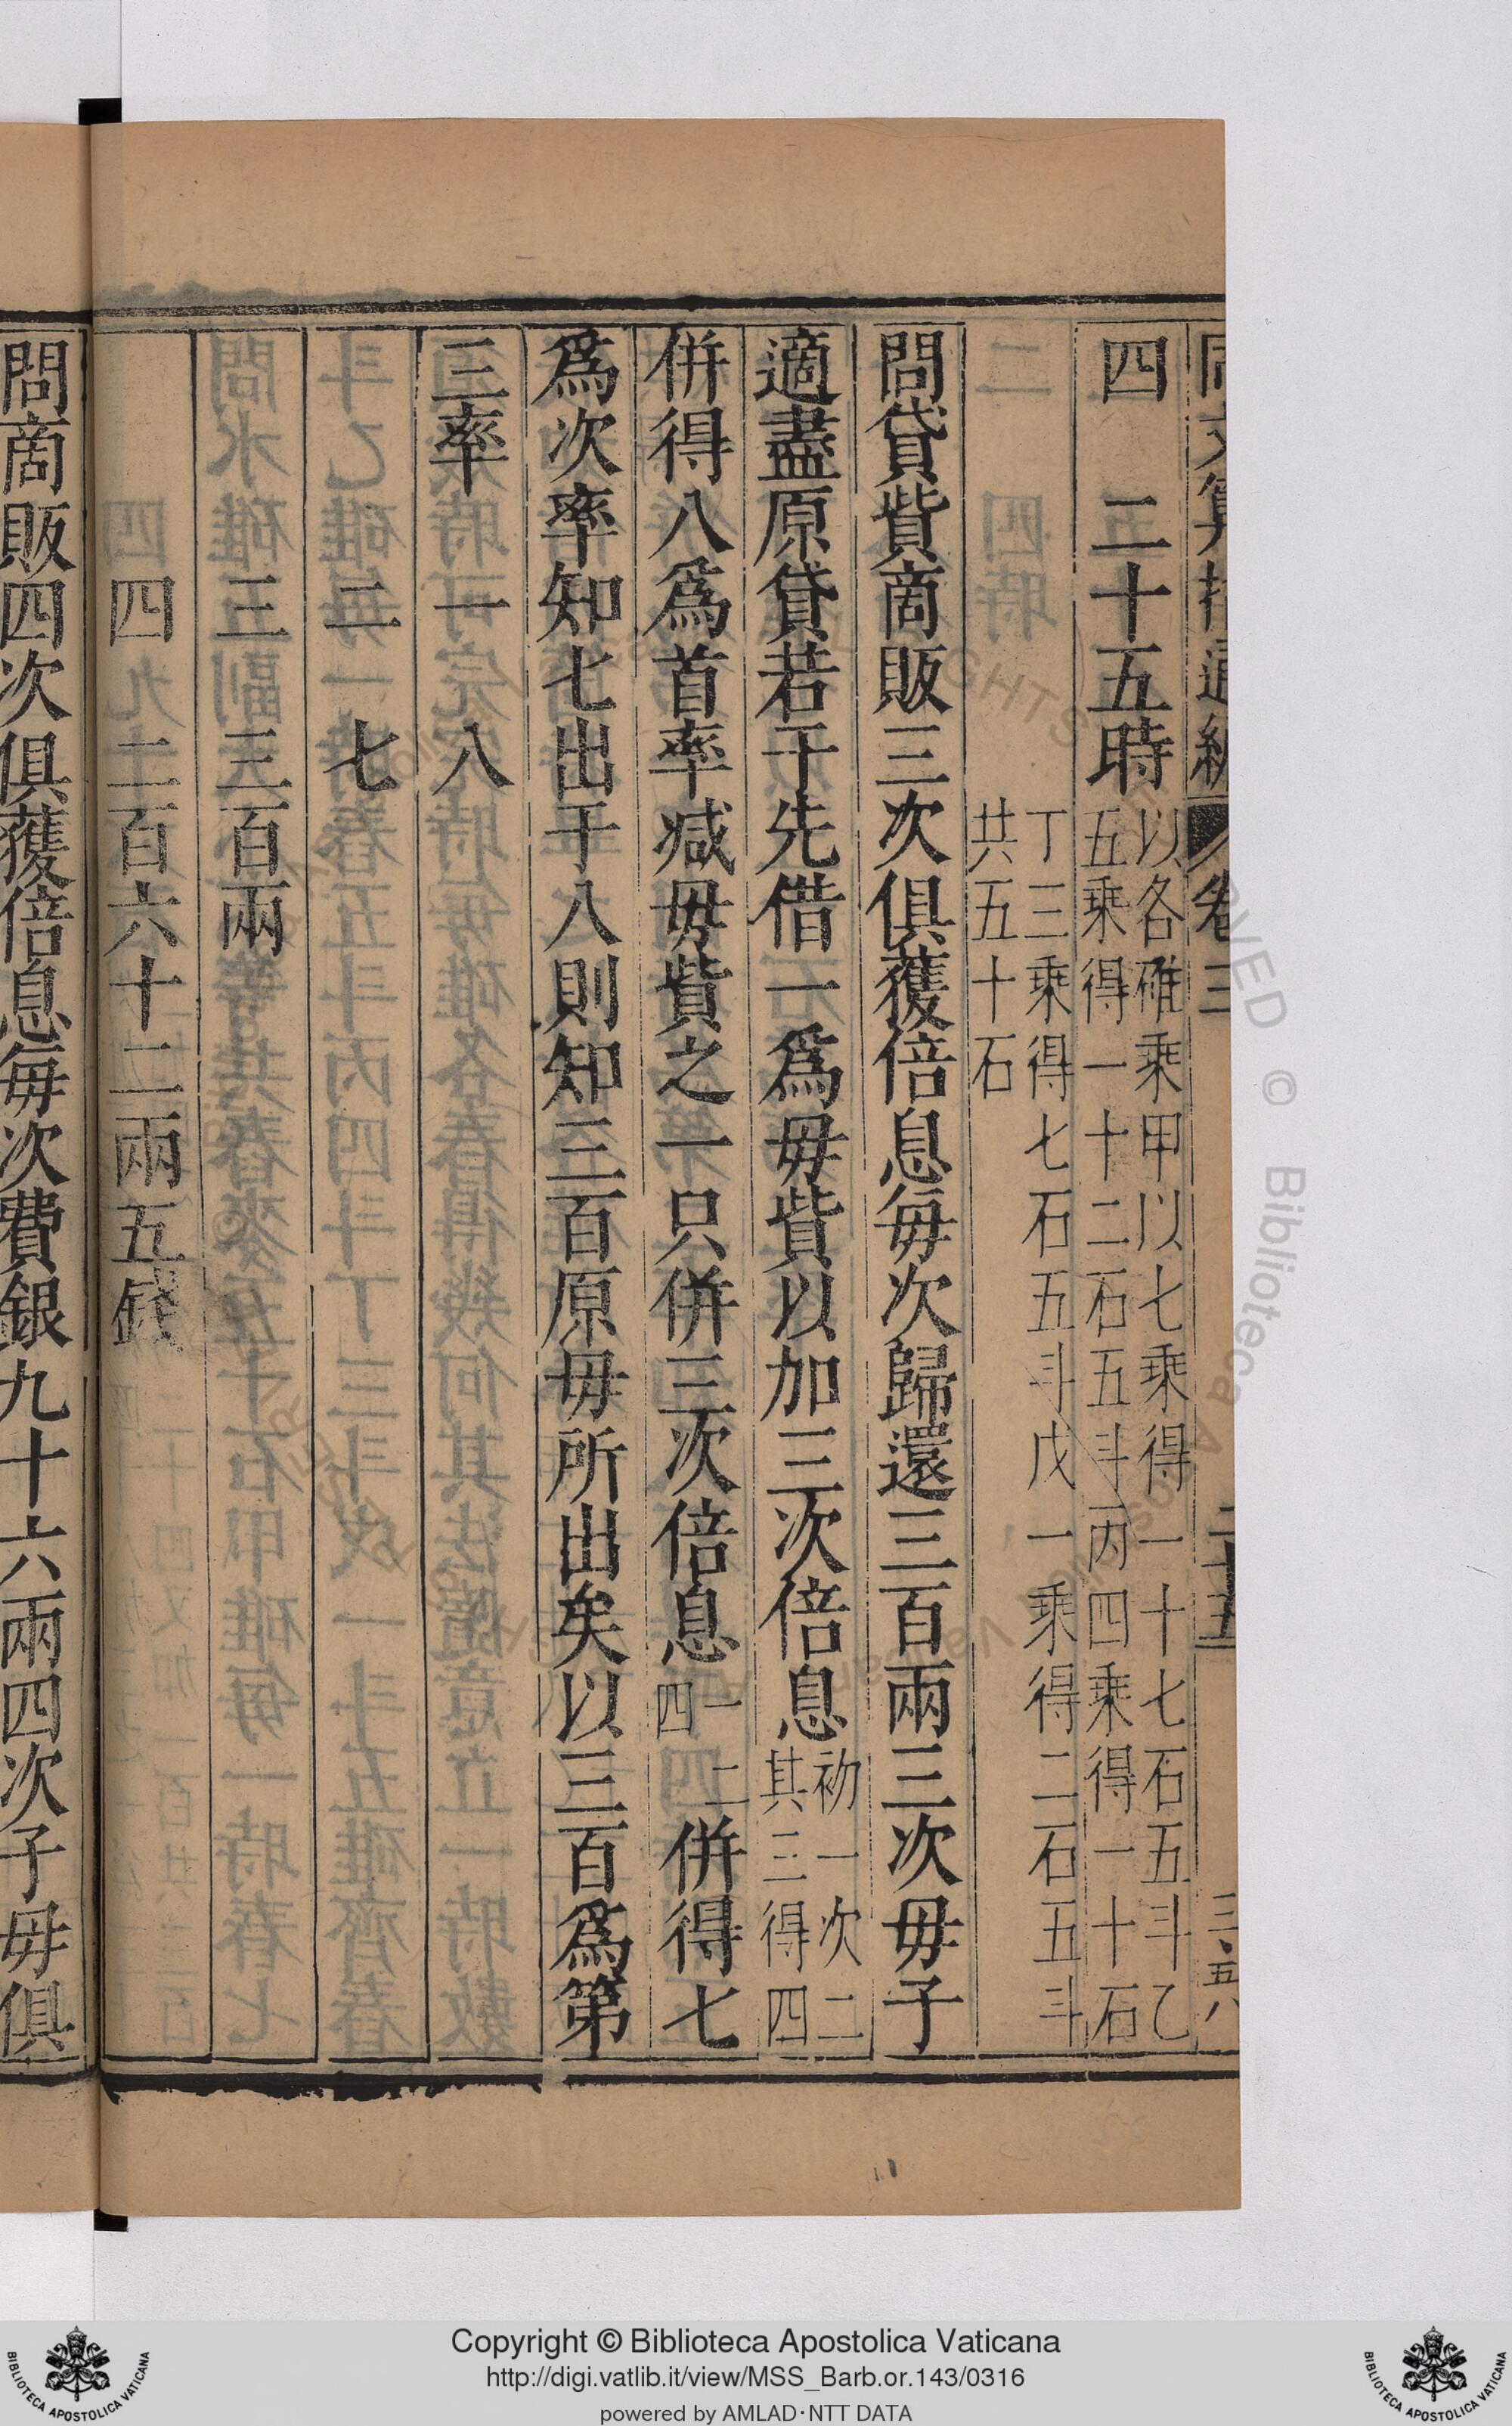 四　二十五時　以各碓乘甲以七乘得一十七石五斗乙
五乘得一十二石五斗丙四乘得一十石
丁三乘得七石五斗戊一乘得二石五斗
共五十石
問貸貲商販三次俱獲倍息每次歸還三百兩三次毋子
適盡原貸若干先借一爲毋貲以加三次倍息初一次二其三得四
併得八爲首率減毋貲之一只併三次倍息一二四併得七
爲次率知七出于八則知三百原毋所出矣以三百爲第
三率　一　八
二　七
三　三百兩
四　二百六十二兩五錢
問商販四次俱獲倍息每次費銀九十六兩四次子毋俱
Copyright © Biblioteca Apostolica Vaticana
http://digi.vatlib.it/view/MSS_Barb.or.143/0316
powered by AMLAD·NTT DATA
BIBLIOTECA APOSTOLICA VATICANA
BIBLIOTECA APOSTOLICA VATICANA